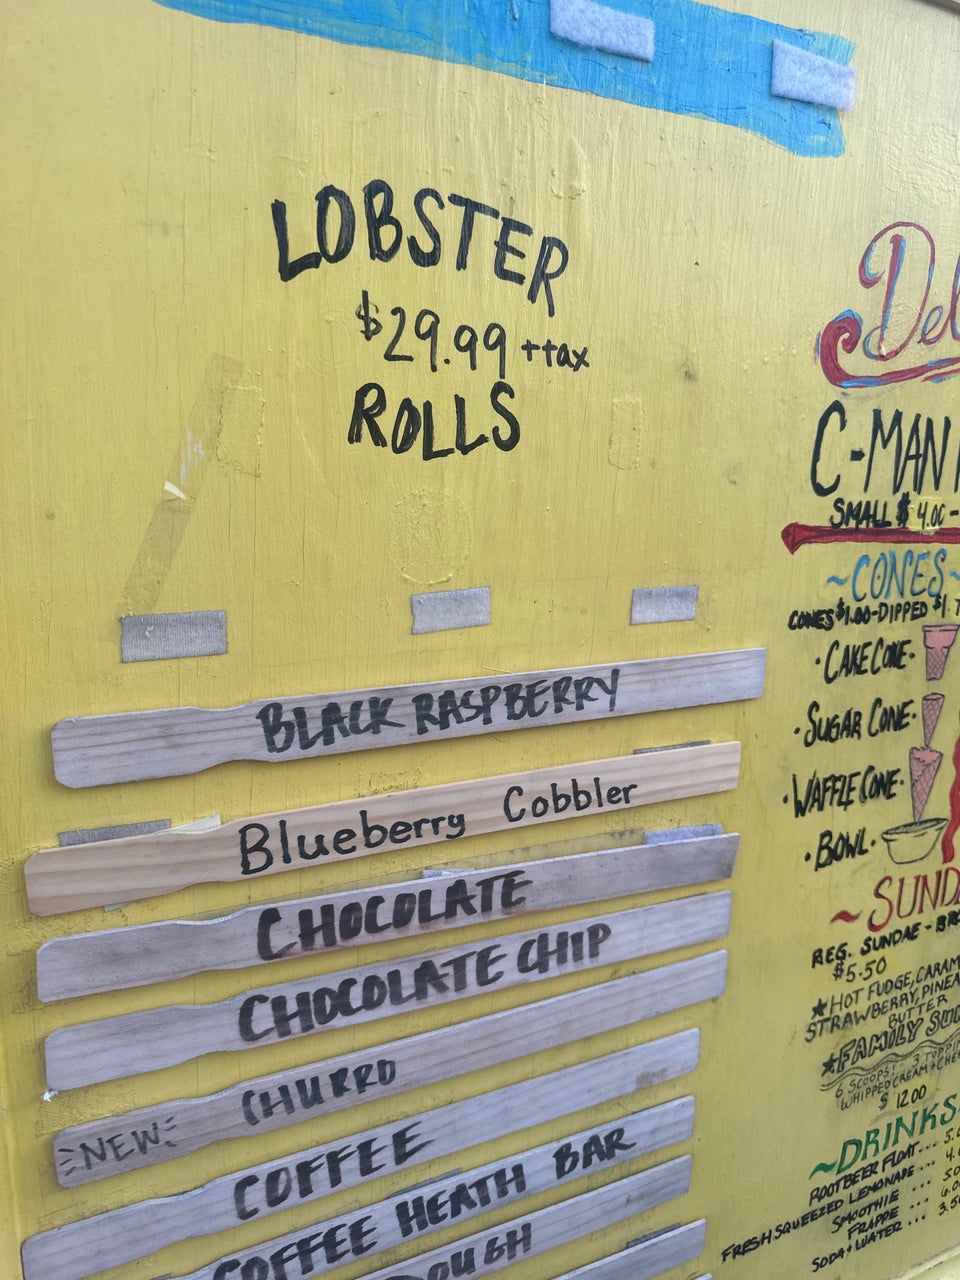 LOBSTER
$29.99 +tax
ROLLS
BLACK RASPBERRY
Blueberry Cobbler
CHOCOLATE
CHOCOLATE CHIP
NEW CHURRO
COFFEE
COFFEE HEATH BAR
DOUGH
Del
C-MAN
SMALL $4.00-
~CONES~
CONES $1.00-DIPPED $1.
·CAKE CONE·
·SUGAR CONE·
·WAFFLE CONE·
·BOWL·
~SUND
REG. SUNDAE - BR
$5.50
★HOT FUDGE, CARAM
STRAWBERRY, PINEA
BUTTER
★FAMILY SU
6 SCOOPS! 3 TOPPIN
WHIPPED CREAM + CHE
$12.00
~DRINKS
ROOTBEER FLOAT... 5.
FRESH SQUEEZED LEMONADE... 4.
SMOOTHIE ... 5.0
FRAPPE ... 6.0
SODA + WATER... 3.50